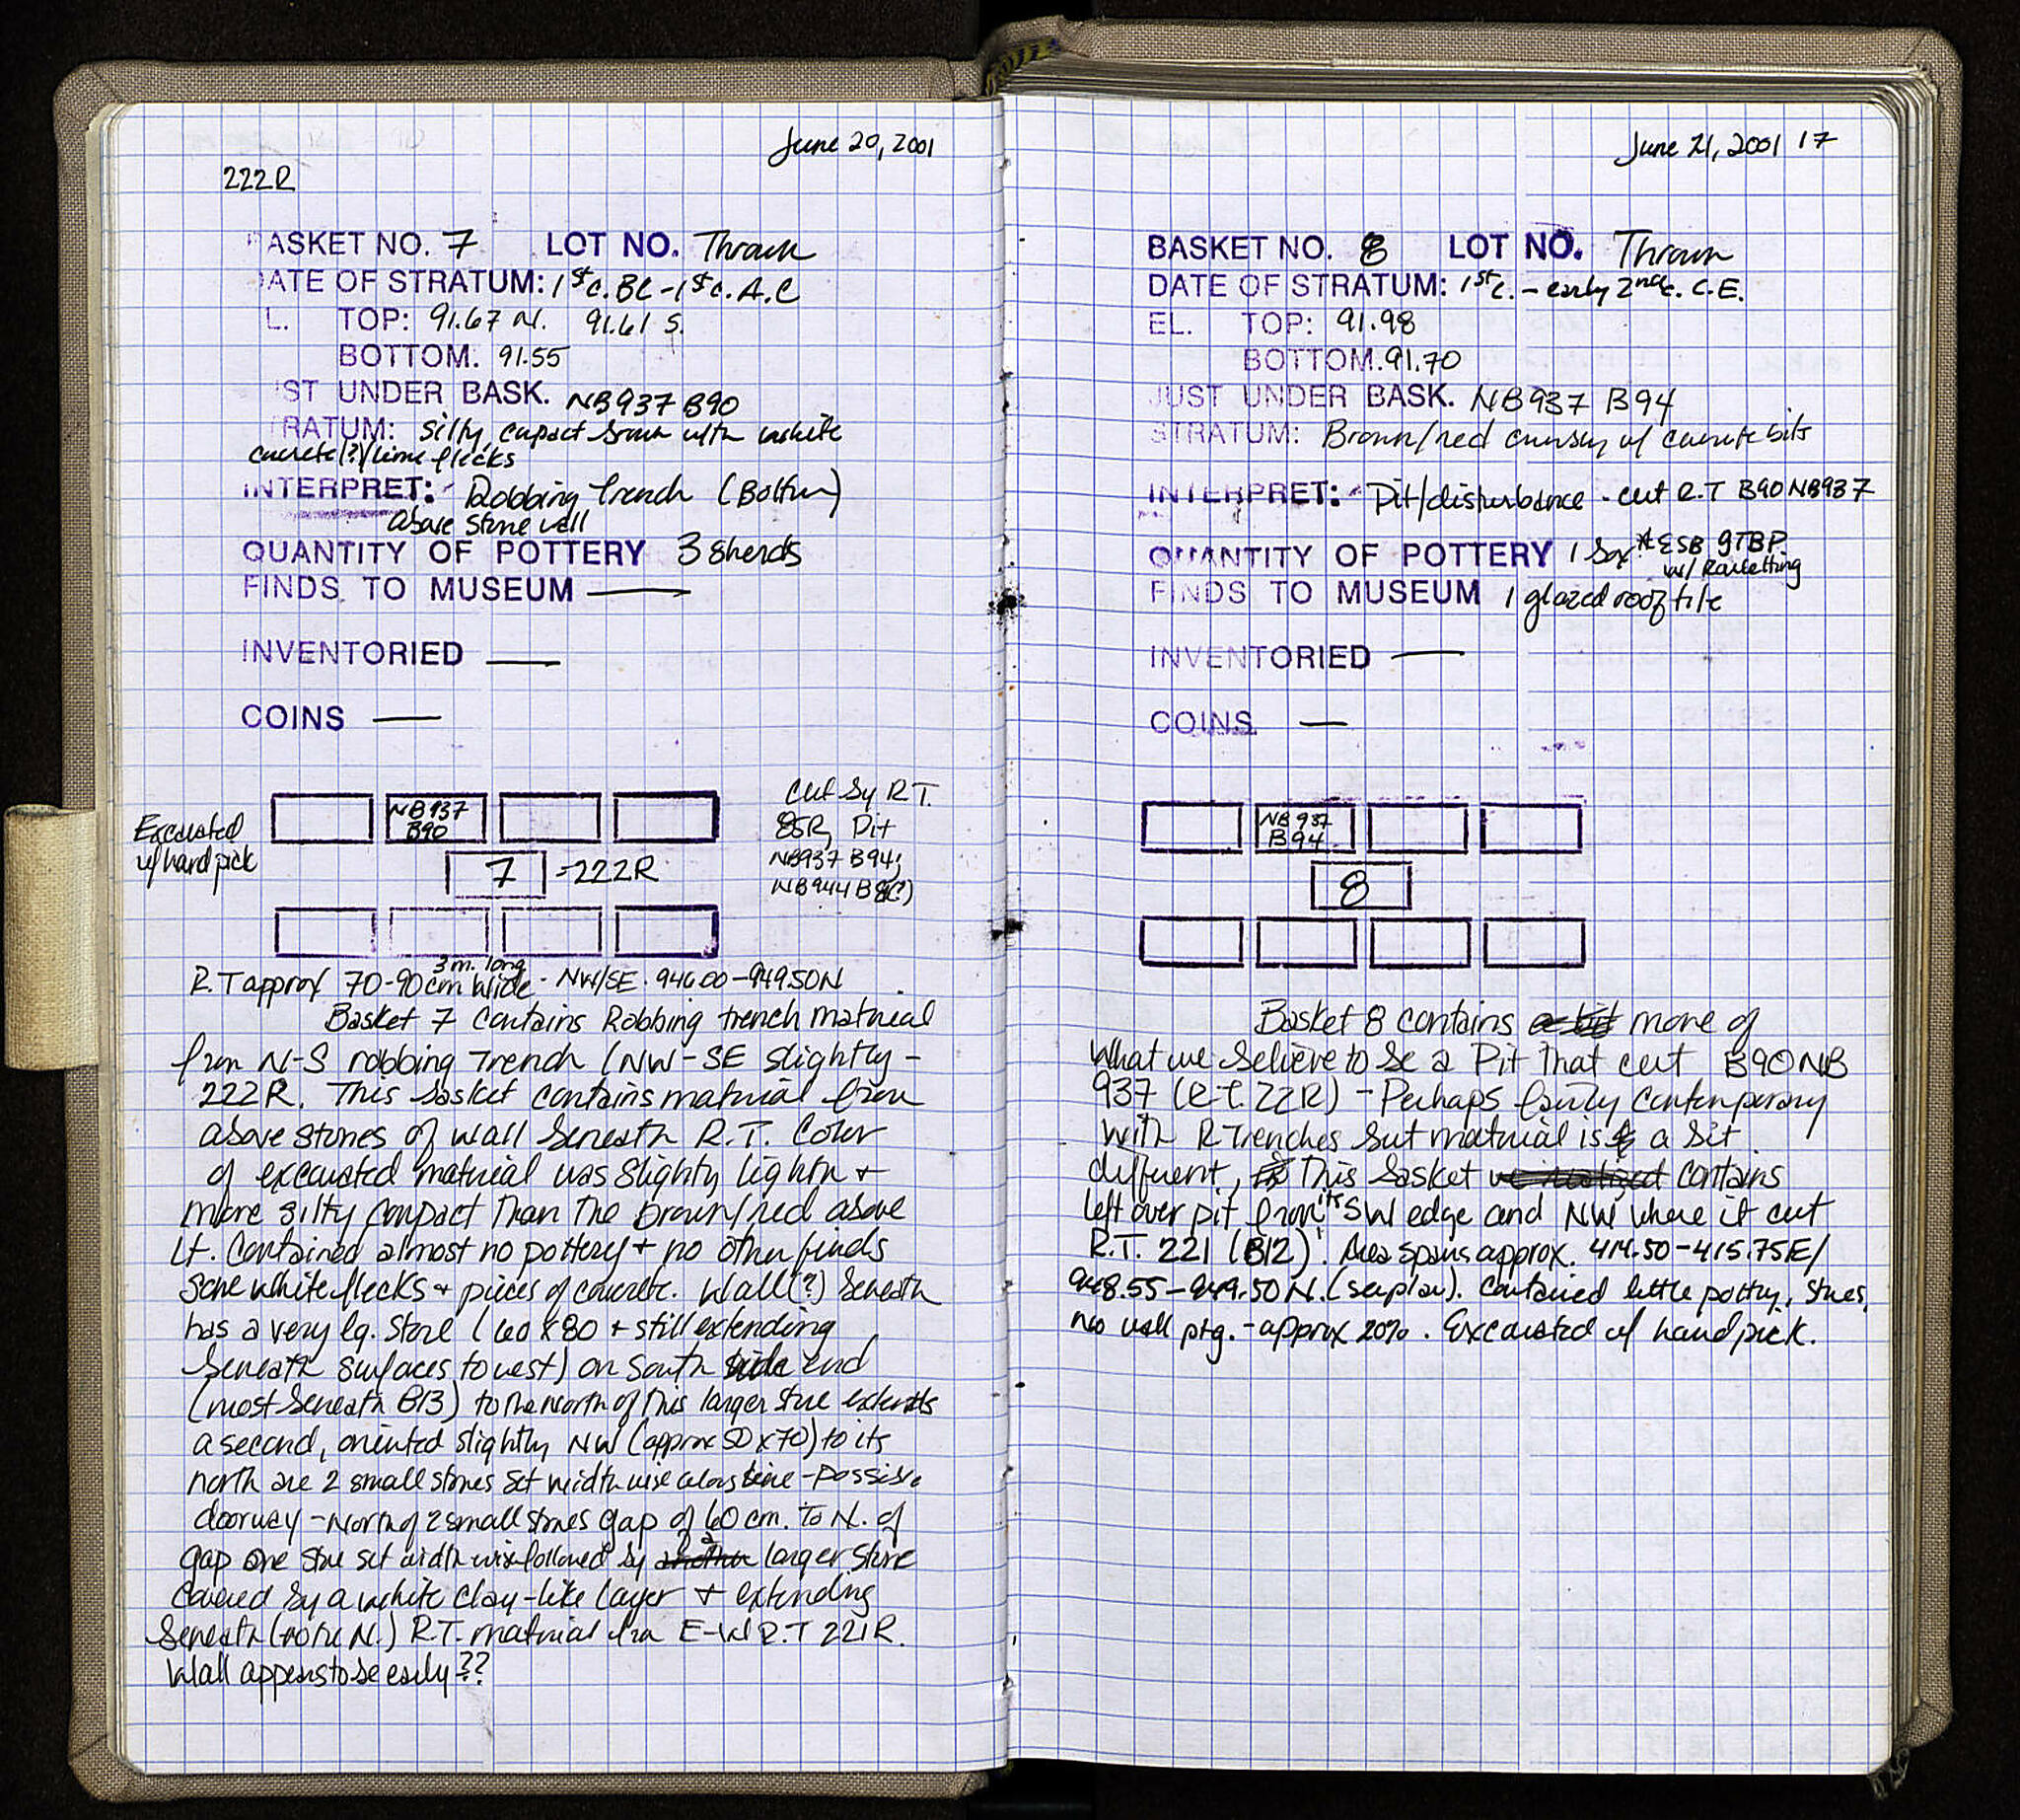 June 20, 2001
222R
ASKET NO. 7 LOT NO. Thrown
ATE OF STRATUM: 1st c. BC - 1st c. A.C
L. TOP: 91.67 N. 91.61 S.
BOTTOM. 91.55
ST UNDER BASK. NB937 B90
RATUM: Silty, compact brown with white
concrete(?)/lime flecks
INTERPRET: Robbing Trench (Bottom)
above stone wall
QUANTITY OF POTTERY 3 sherds
FINDS TO MUSEUM —
INVENTORIED —
COINS —
Excavated
w/ hand pick
NB937
B90
7 =222R
Cut by R.T.
85R, Pit
NB937 B94;
NB944 B8(?)
3 m. long
R.T approx 70-90 cm wide - NW/SE. 946.00-949.50N
Basket 7 contains Robbing trench material
from N-S robbing Trench (NW-SE slightly -
222R. This basket contains material from
above stones of wall beneath R.T. Color
of excavated material was slightly lighter +
more silty compact than the brown/red above
it. Contained almost no pottery + no other finds
some white flecks + pieces of concrete. Wall(?) beneath
has a very lg. stone (60 x 80 + still extending
beneath surfaces to west) on south side end
(most beneath B13) to the north of this larger stone extends
a second, oriented slightly NW (approx 50 x 70) to its
north are 2 small stones set width wise along line - possible
doorway - North of 2 small stones gap of 60 cm. To N. of
gap one stone set width wise followed by another a larger stone
covered by a white clay-like layer + extending
beneath (to the N.) R.T. material from E-W R.T 221R.
Wall appears to be early??
June 21, 2001 17
BASKET NO. 8 LOT NO. Thrown
DATE OF STRATUM: 1st c. - early 2nd c. C.E.
EL. TOP: 91.98
BOTTOM. 91.70
JUST UNDER BASK. NB937 B94
STRATUM: Brown/red crumbly w/ concrete bits
INTERPRET: Pit/disturbance - cut R.T B90 NB937
QUANTITY OF POTTERY 1 box * ESB 9TBP
w/ Rouletting
FINDS TO MUSEUM 1 glazed roof tile
INVENTORIED —
COINS —
NB 937
B94
8
Basket 8 contains a bit more of
what we believe to be a Pit that cut B90 NB
937 (R.T. 22R) - Perhaps fairly contemporary
with R Trenches but material is a bit
different, This basket contains
left over pit from its SW edge and NW where it cut
R.T. 221 (B12). Area spans approx. 414.50-415.75E/
948.55-949.50 N. (see plan). Contained little pottery, stones,
no wall ptg. - approx 20%. Excavated w/ hand pick.